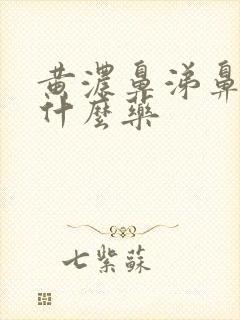 黄濃鼻涕鼻
什麼藥
七紫蘇